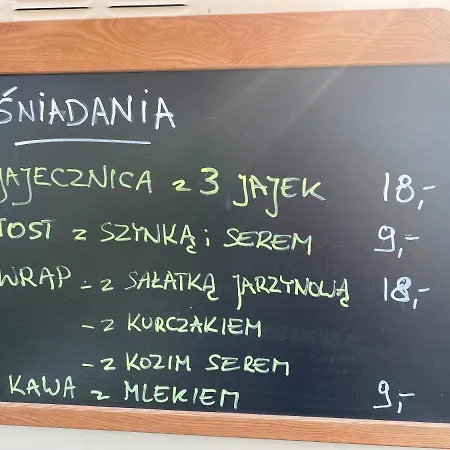 ŚNIADANIA
JAJECZNICA z 3 JAJEK 18,-
TOST z SZYNKĄ i SEREM 9,-
WRAP - z SAŁATKĄ JARZYNOWĄ 18,-
- z KURCZAKIEM
- z KOZIM SEREM
KAWA z MLEKIEM 9,-